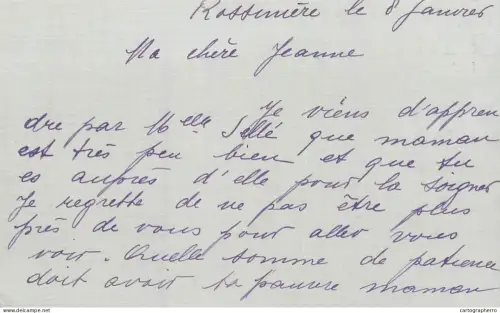 Rossinière le 8 Janvier
Ma chère Jeanne
Je viens d'appren
dre par Melle que maman
est très peu bien et que tu
es auprès d'elle pour la soigner
Je regrette de ne pas être plus
près de vous pour aller vous
voir. Quelle somme de patience
doit avoir ta pauvre maman
cartographero